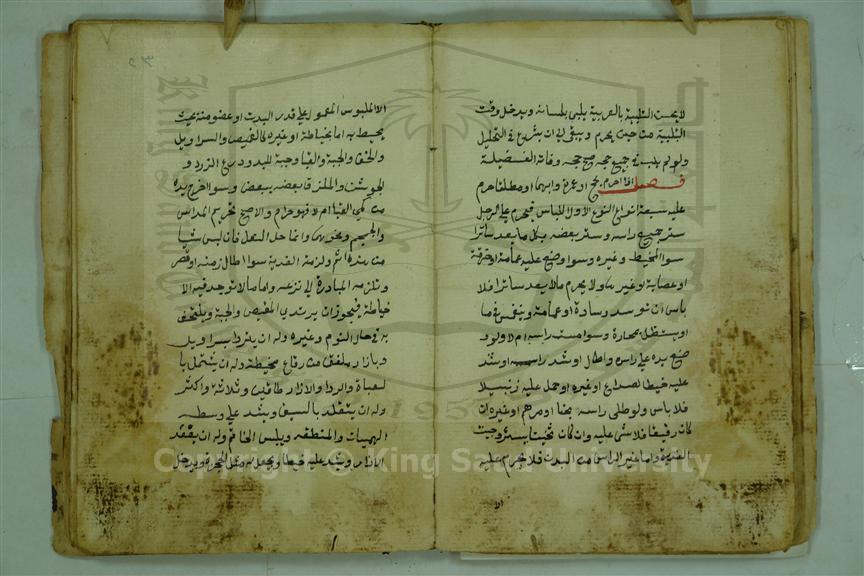 لا يحسن التلبية بالعربية يلبي بلسانه ويدخل وقت
التلبية من حين يحرم ويبقى الى ان يشرع في التحليل
ولو لم يلب في جميع حجه صح حجه وفاته الفضيلة
فصل اذا احرم بحج او عمرة او بهما او مطلقا حرم
عليه سبعة انواع النوع الاول اللباس فيحرم على الرجل
ستر جميع راسه وستر بعضه بكل ما يعد ساترا
سوا المخيط وغيره وسوا وضع عليه عمامة او خرقة
او عصابة او غيرها ولا يحرم ما لا يعد ساترا فلا
باس ان توسد وسادة او عمامة وينغمس في ما
او يستظل بمحارة وسوا مست راسه ام لا ولو و
ضع يده على راسه واطال او شد راسه او شد
عليه خيطا لصداع او غيره او حمل عليه زنبيلا
فلا باس ولو طلى راسه بحنا او مرهم او غيره ان
كان رقيقا فلا شي عليه وان كان ثخينا يستره وجبت
الفدية واما غير الراس من البدن فلا يحرم عليه
الا
الا الملبوس المعمول على قدر البدن او عضو منه بحيث
يحيط به اما بخياطة او غيره كالقميص والسراويل
والخف والجبة والقبا وجبة اللبد ودرع الزرد و
الجوشن والملزق بعضه ببعض وسوا اخرج يده
من كمي القبا ام لا فهو حرام والاصح تحريم المداس
والجمجم ونحوها وانما حل النعل فان لبس شيا
من هذه اثم ولزمته الفدية سوا اطال زمنه او قصر
وتلزمه المبادرة الى نزعه واما ما لا توجد فيه الا
خياطة فيجوز ان يرتدي القميص والجبة ويلتحف
به في حال النوم وغيره وله ان يتزر بسراويل
وبازار ملفق من رقاع مخيطة وله ان يشتمل با
لعباة والردا والازار طاقين وثلاثة واكثر
وله ان يتقلد بالسيف ويشد على وسطه
الهميان والمنطقة ويلبس الخاتم وله ان يعقد
الازار ويشد عليه خيطا ويجعل له مثل الحجزة ويدخل
Copyright © King Saud University
1957